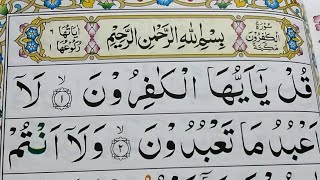 سُوْرَةُ الْكٰفِرُوْنَ مَكِّيَّةٌ
بِسْمِ اللّٰهِ الرَّحْمٰنِ الرَّحِيْمِ
اٰيَاتُهَا ٦ رُكُوْعُهَا ١
قُلْ يٰۤاَيُّهَا الْكٰفِرُوْنَ ۙ‏ ١ لَاۤ
اَعْبُدُ مَا تَعْبُدُوْنَ ۙ‏ ٢ وَلَاۤ اَنْتُمْ